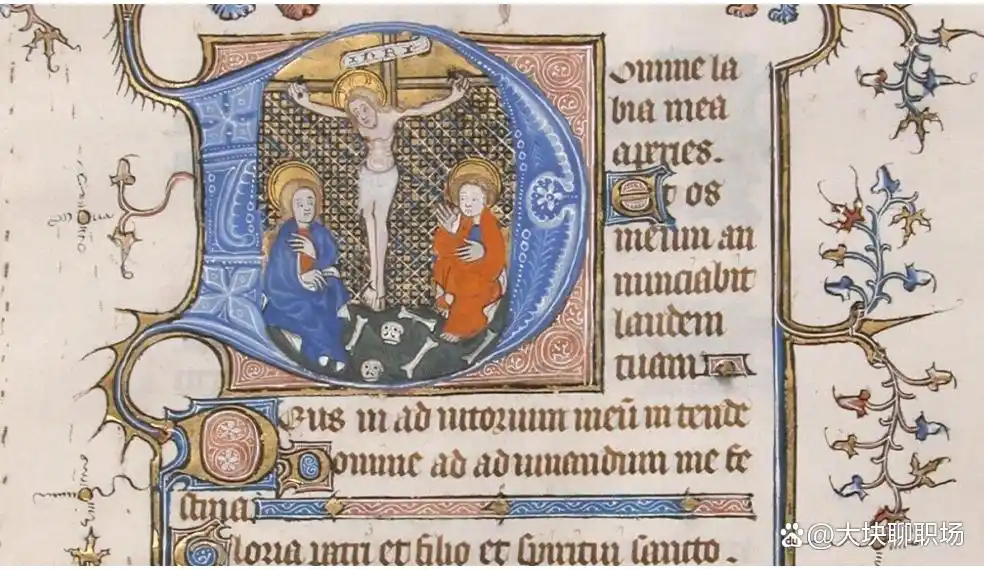 INRI
Domine la
bia mea
aperies.
Et os
meum an
nunciabit
laudem
tuam
Deus in adiutorium meū intende
Domine ad adiuuandum me fe
stina
Gloria patri et filio et spiritui sancto.
du @大块聊职场